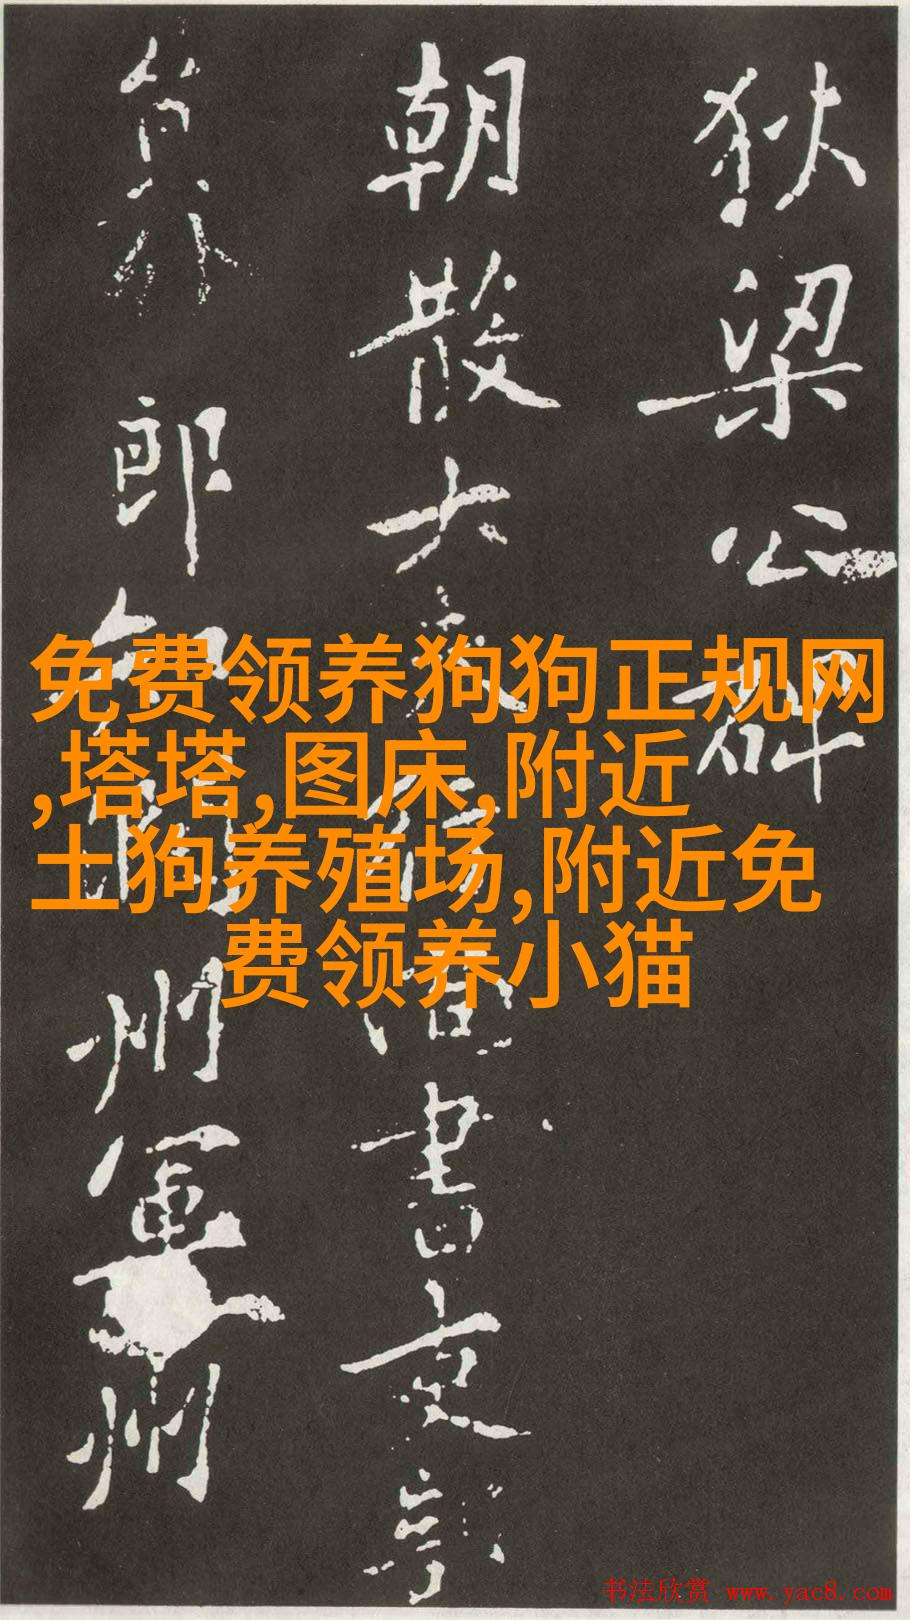 狄梁公碑
朝散大夫行
書文
郎
州軍州
免费领养狗狗正规网
,塔塔,图床,附近
土狗养殖场,附近免
费领养小猫
书法欣赏 www.yac8.com